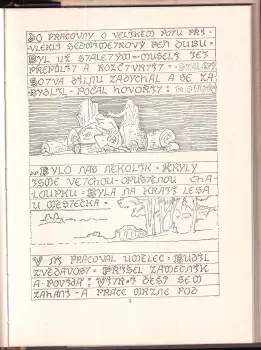 DO PRACOVNY O VELIKÉM POTU PŘI-
VLEKLI SEDMIMETROVÝ PEŇ DUBU -
BYL UŽ STALETÝM - MUSELI JEJ
PŘEPŮLIT A ROZČTVRTIT -
SOTVA DÍLNU ZADÝCHAL A SE ZA-
BYDLIL - POČAL HOVOŘIT:
„BYLO NÁS NĚKOLIK - KRYLY
JSME VETCHOU - OPUŠTĚNOU CHA-
LOUPKU - BYLA NA KRAJI LESA
U MĚSTEČKA -
V NÍ PRACOVAL UMĚLEC - BUDIL
ZVĚDAVOST - PŘIŠEL ZÁMEČNÍK
A POVÍDÁ: VÍTR I DÉŠŤ SEM
ZAHÁNÍ - A PRÁCE MRZNE POD